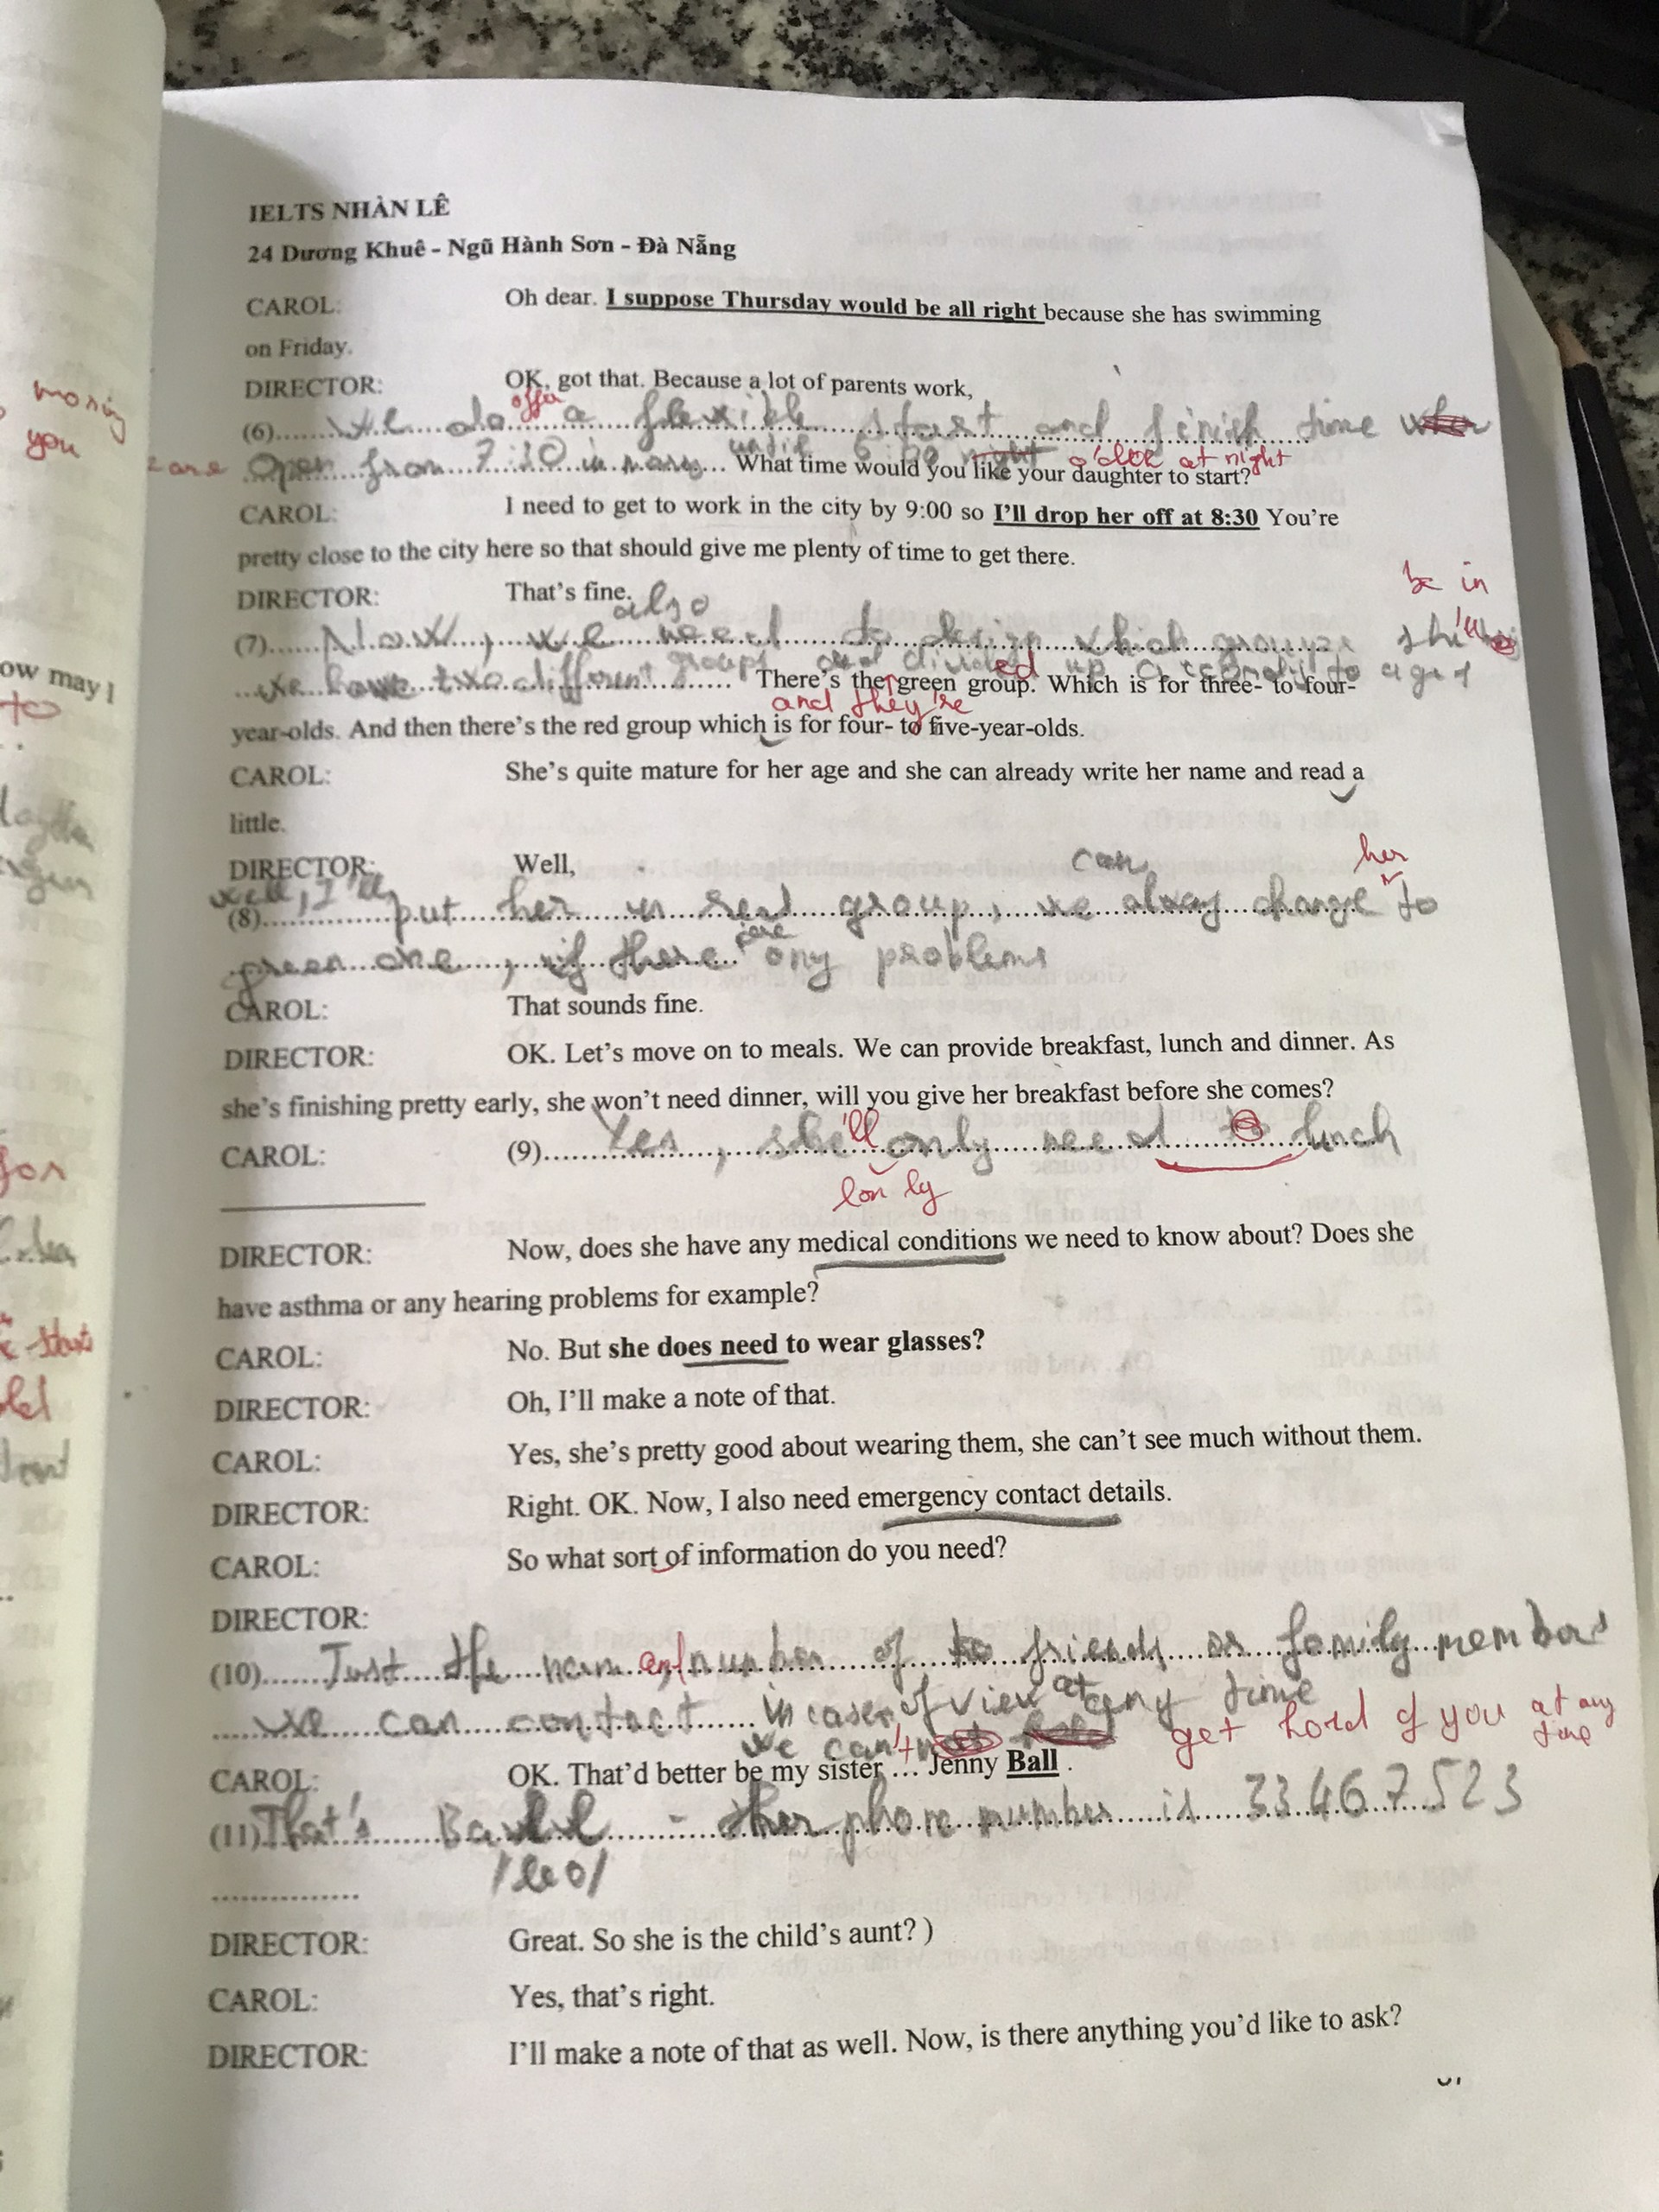 IELTS NHÀN LÊ
24 Dương Khuê - Ngũ Hành Sơn - Đà Nẵng
CAROL: Oh dear. I suppose Thursday would be all right because she has swimming
on Friday.
DIRECTOR: OK, got that. Because a lot of parents work,
offer
(6) we do a flexible start and finish time
are open from 7:30 in until 6:00 o'clock at night What time would you like your daughter to start?
CAROL: I need to get to work in the city by 9:00 so I'll drop her off at 8:30 You're
pretty close to the city here so that should give me plenty of time to get there.
be in
DIRECTOR: That's fine.
also
(7) Now, we need to which groups she'll
we have two different groups and divided up to ages There's the green group. Which is for three- to four-
and they're
year-olds. And then there's the red group which is for four- to five-year-olds.
CAROL: She's quite mature for her age and she can already write her name and read a
little.
DIRECTOR: Well,
can her
well, I'll
(8) put her in group, we change to
green one, if there are any problems
CAROL: That sounds fine.
DIRECTOR: OK. Let's move on to meals. We can provide breakfast, lunch and dinner. As
she's finishing pretty early, she won't need dinner, will you give her breakfast before she comes?
CAROL: (9) Yes, she'll only need lunch
lon ly
DIRECTOR: Now, does she have any medical conditions we need to know about? Does she
have asthma or any hearing problems for example?
CAROL: No. But she does need to wear glasses?
DIRECTOR: Oh, I'll make a note of that.
CAROL: Yes, she's pretty good about wearing them, she can't see much without them.
DIRECTOR: Right. OK. Now, I also need emergency contact details.
CAROL: So what sort of information do you need?
DIRECTOR:
(10) Just the number of friends or family members
we can contact in case of view at any time
we can't get hold of you at any time
CAROL: OK. That'd better be my sister … Jenny Ball .
(11) That's Ball - her phone number is 33467523
DIRECTOR: Great. So she is the child's aunt? )
CAROL: Yes, that's right.
DIRECTOR: I'll make a note of that as well. Now, is there anything you'd like to ask?
ow may I
to
you